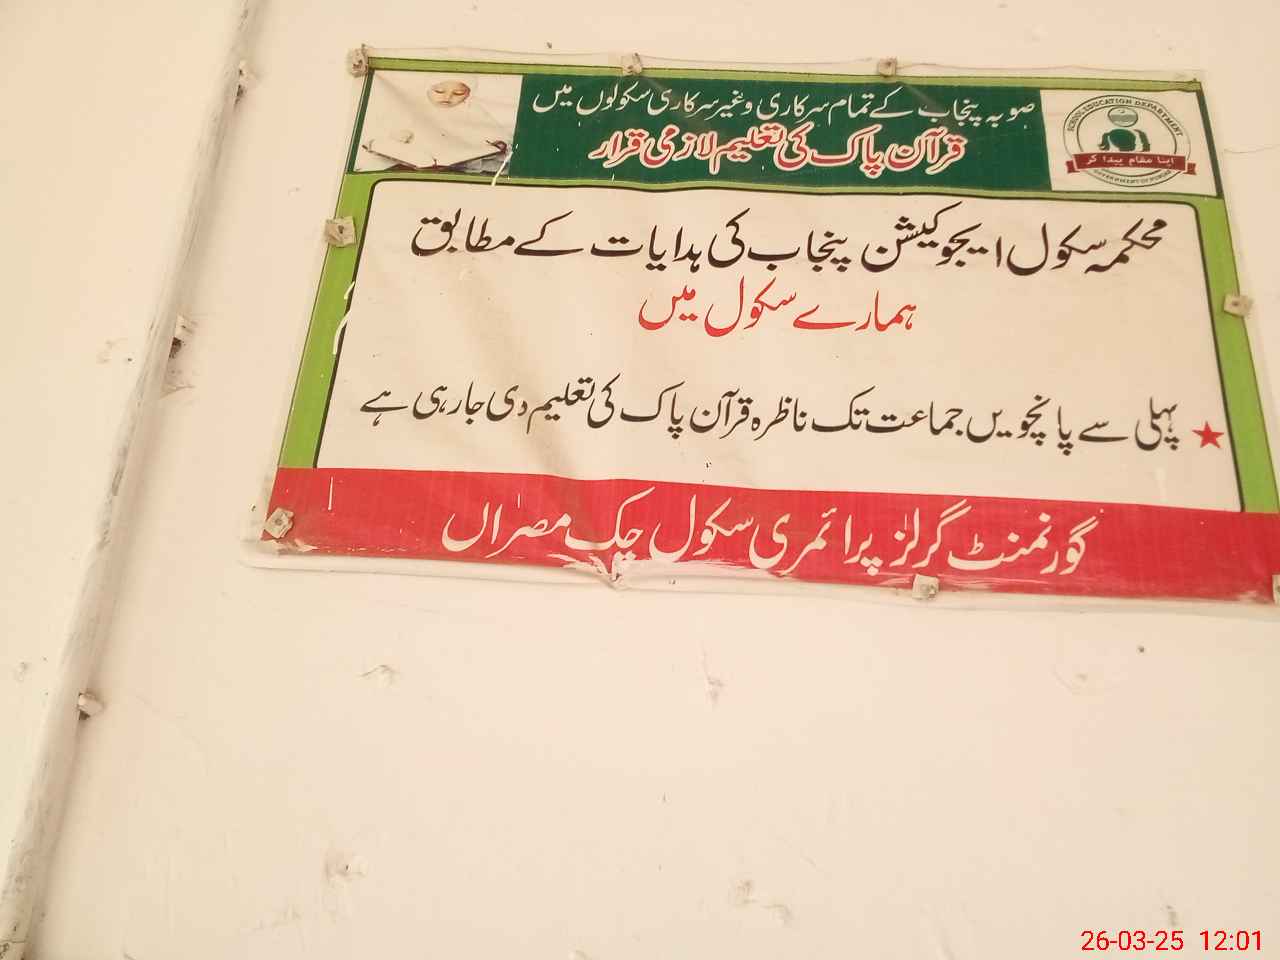 صوبہ پنجاب کے تمام سرکاری و غیر سرکاری سکولوں میں
قرآن پاک کی تعلیم لازمی قرار
SCHOOL EDUCATION DEPARTMENT
اپنا مقام پیدا کر
GOVERNMENT OF PUNJAB
محکمہ سکول ایجوکیشن پنجاب کی ہدایات کے مطابق
ہمارے سکول میں
پہلی سے پانچویں جماعت تک ناظرہ قرآن پاک کی تعلیم دی جا رہی ہے
گورنمنٹ گرلز پرائمری سکول چک مصراں
26-03-25 12:01